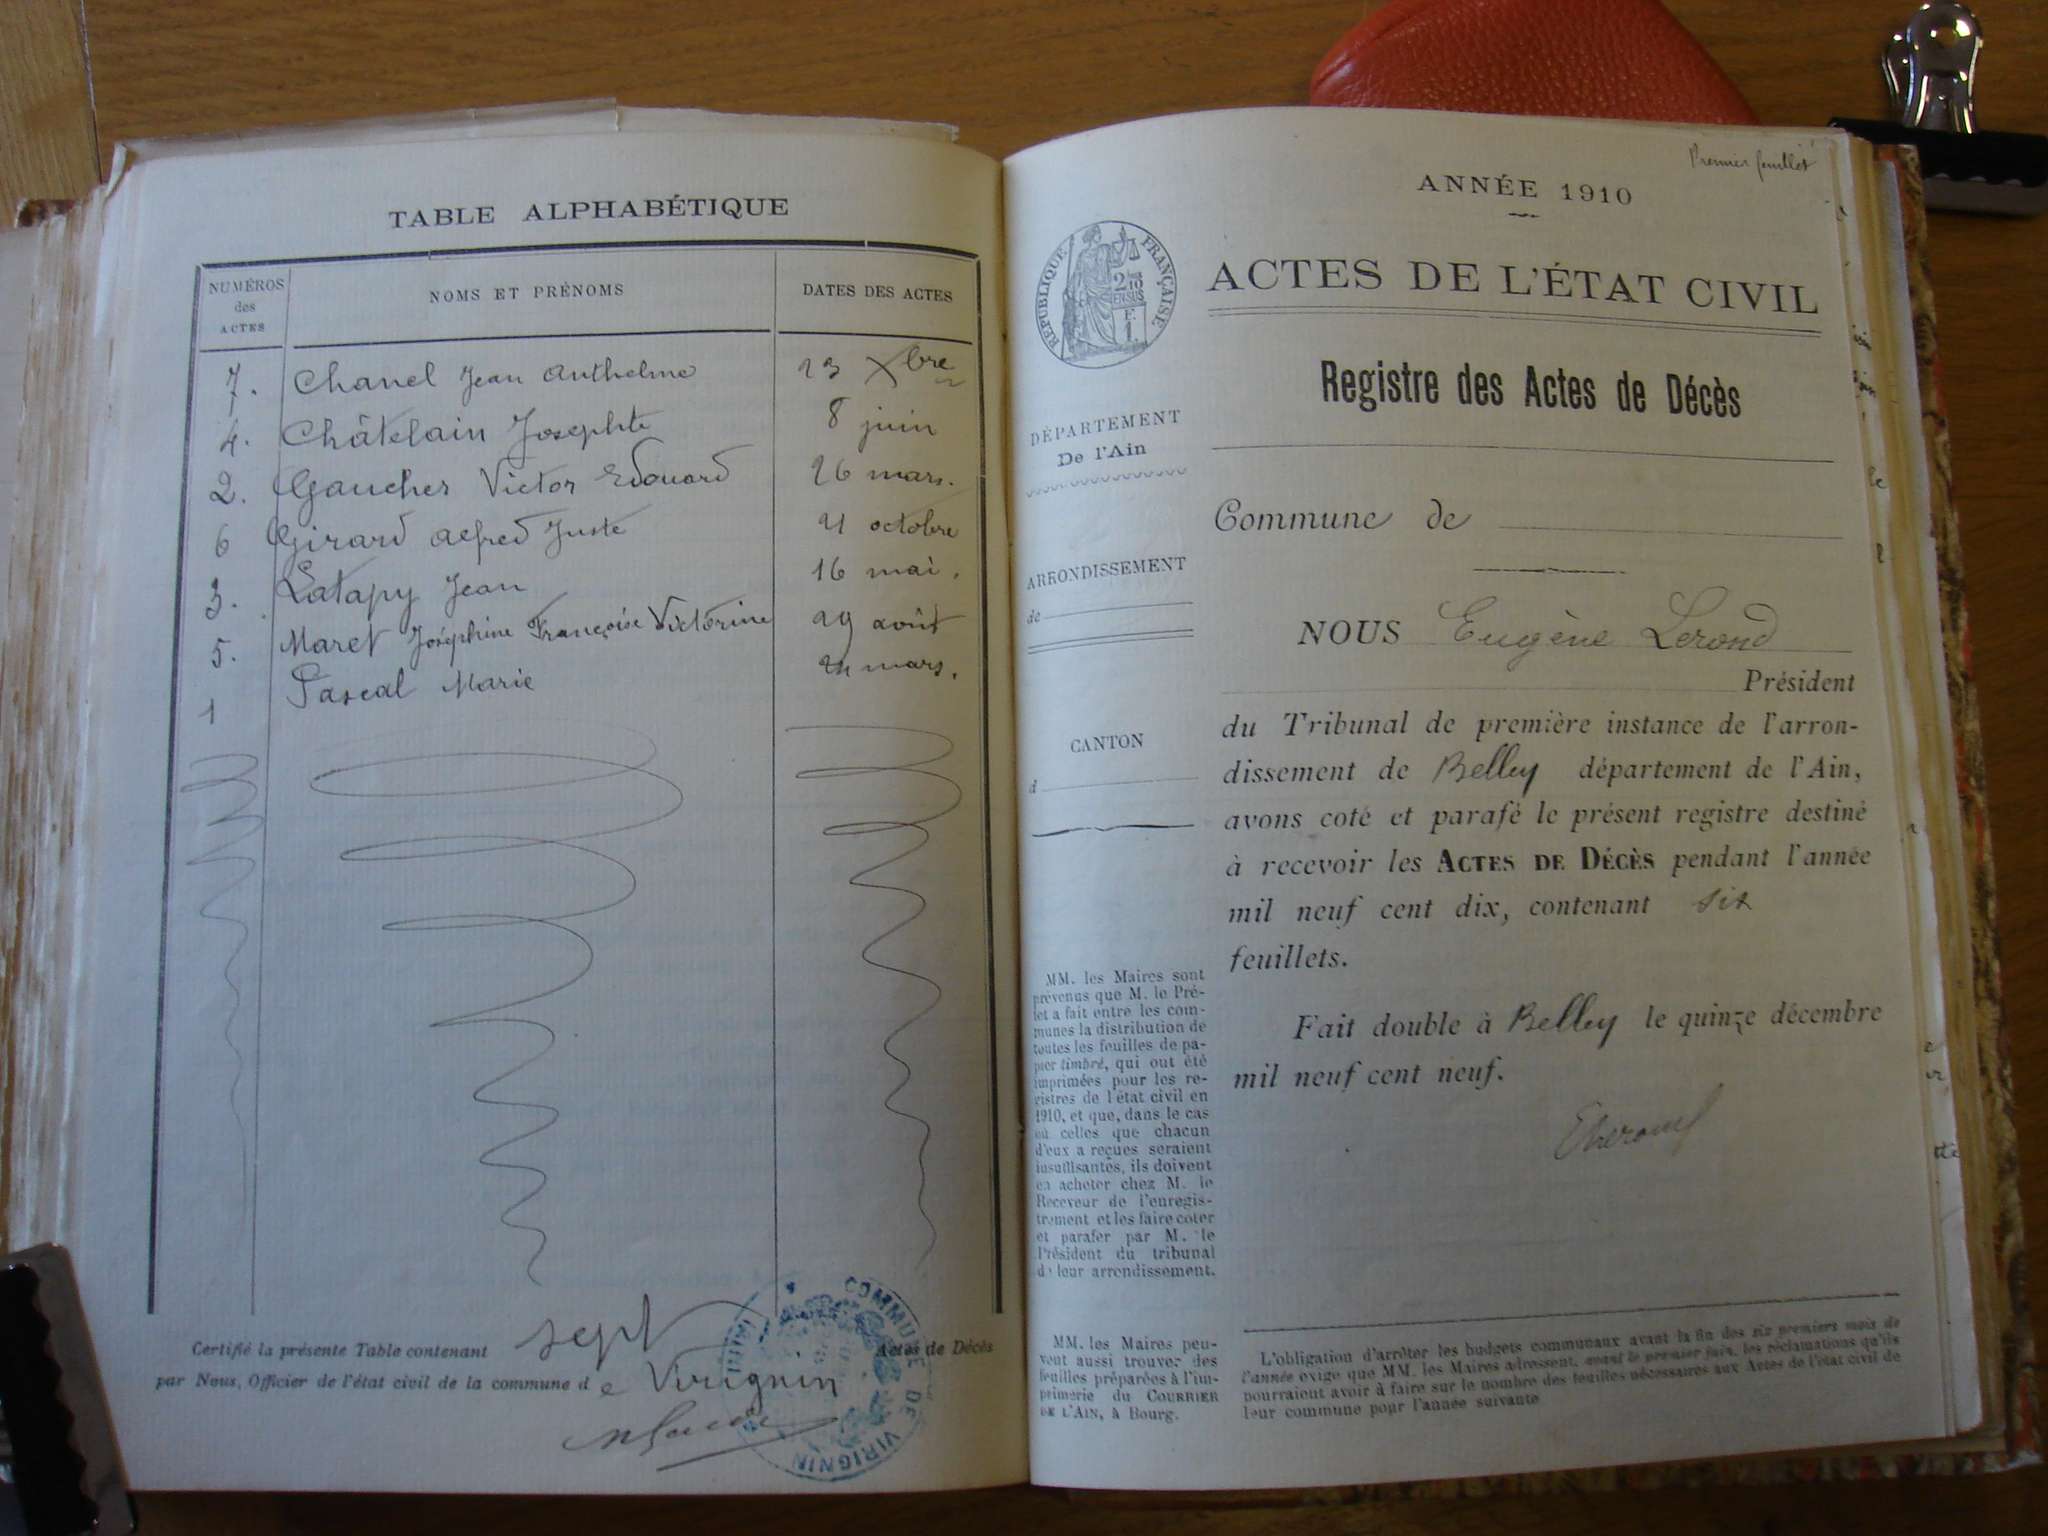 TABLE ALPHABÉTIQUE
NUMÉROS des ACTES NOMS ET PRÉNOMS DATES DES ACTES
7. Chanel Jean Anthelme 23 Xbre
4. Châtelain Josephte 8 juin
2. Gaucher Victor Edouard 26 mars.
6 Girard Alfred Juste 21 octobre
3. Latapy Jean 16 mai.
5. Maret Joséphine Françoise Victorine 29 août
1 Pascal Marie mars.
Certifié la présente Table contenant sept Actes de Décès
par Nous, Officier de l'état civil de la commune de Virignin
MAIRIE COMMUNE DE VIRIGNIN
Premier feuillet
ANNÉE 1910
RÉPUBLIQUE FRANÇAISE
2/10 EN SUS
F. 1.
ACTES DE L'ÉTAT CIVIL
Registre des Actes de Décès
DÉPARTEMENT
De l'Ain
Commune de
ARRONDISSEMENT
de
CANTON
d
NOUS Eugène Lerond
Président
du Tribunal de première instance de l'arron-
dissement de Belley département de l'Ain,
avons coté et parafé le présent registre destiné
à recevoir les ACTES DE DÉCÈS pendant l'année
mil neuf cent dix, contenant six
feuillets.
Fait double à Belley le quinze décembre
mil neuf cent neuf.
MM. les Maires sont
prévenus que M. le Pré-
fet a fait entre les com-
munes la distribution de
toutes les feuilles de pa-
pier timbré, qui ont été
imprimées pour les re-
gistres de l'état civil en
1910, et que, dans le cas
où celles que chacun
d'eux a reçues seraient
insuffisantes, ils doivent
en acheter chez M. le
Receveur de l'enregis-
trement et les faire coter
et parafer par M. le
Président du tribunal
de leur arrondissement.
MM. les Maires peu-
vent aussi trouver des
feuilles préparées à l'im-
primerie du COURRIER
DE L'AIN, à Bourg.
L'obligation d'arrêter les budgets communaux avant la fin des six premiers mois de
l'année exige que MM. les Maires adressent, avant le premier juin, les réclamations qu'ils
pourraient avoir à faire sur le nombre des feuilles nécessaires aux Actes de l'état civil de
leur commune pour l'année suivante